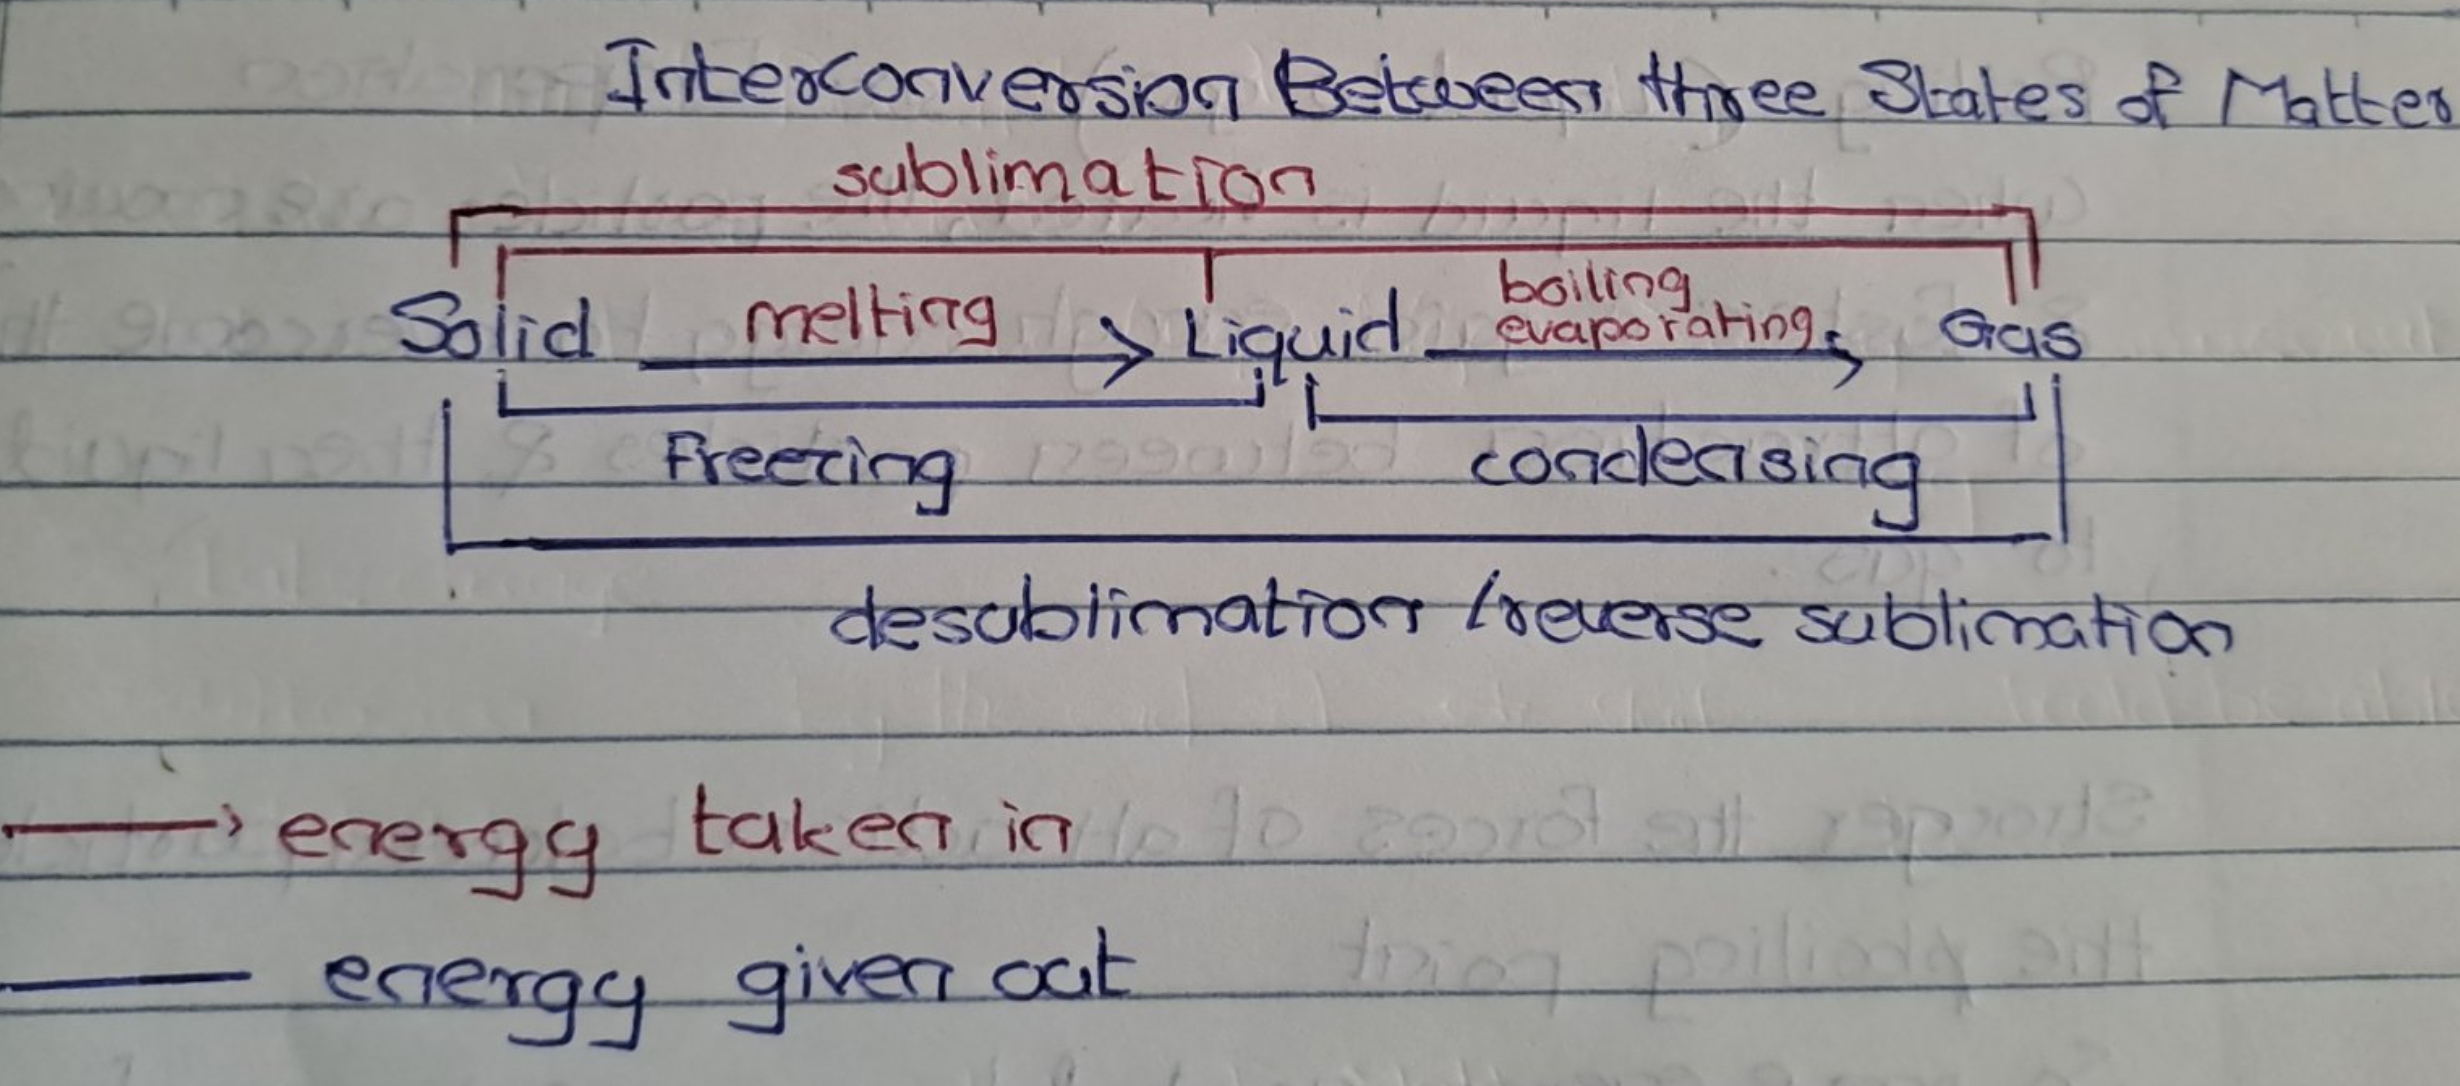 Interconversion Between three States of Matter
sublimation
Solid melting Liquid boiling evaporating Gas
Freezing condensing
desublimation / reverse sublimation
energy taken in
energy given out